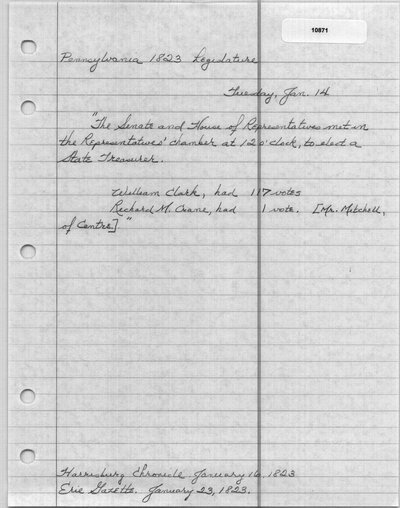 10871
Pennsylvania 1823 Legislature
Tuesday, Jan. 14
"The Senate and House of Representatives met in
the Representatives' chamber at 12 o'clock, to elect a
State Treasurer.
William Clark, had 117 votes
Richard M. Crane, had 1 vote. [Mr. Mitchell,
of Centre]"
Harrisburg Chronicle January 16, 1823
Erie Gazette. January 23, 1823.